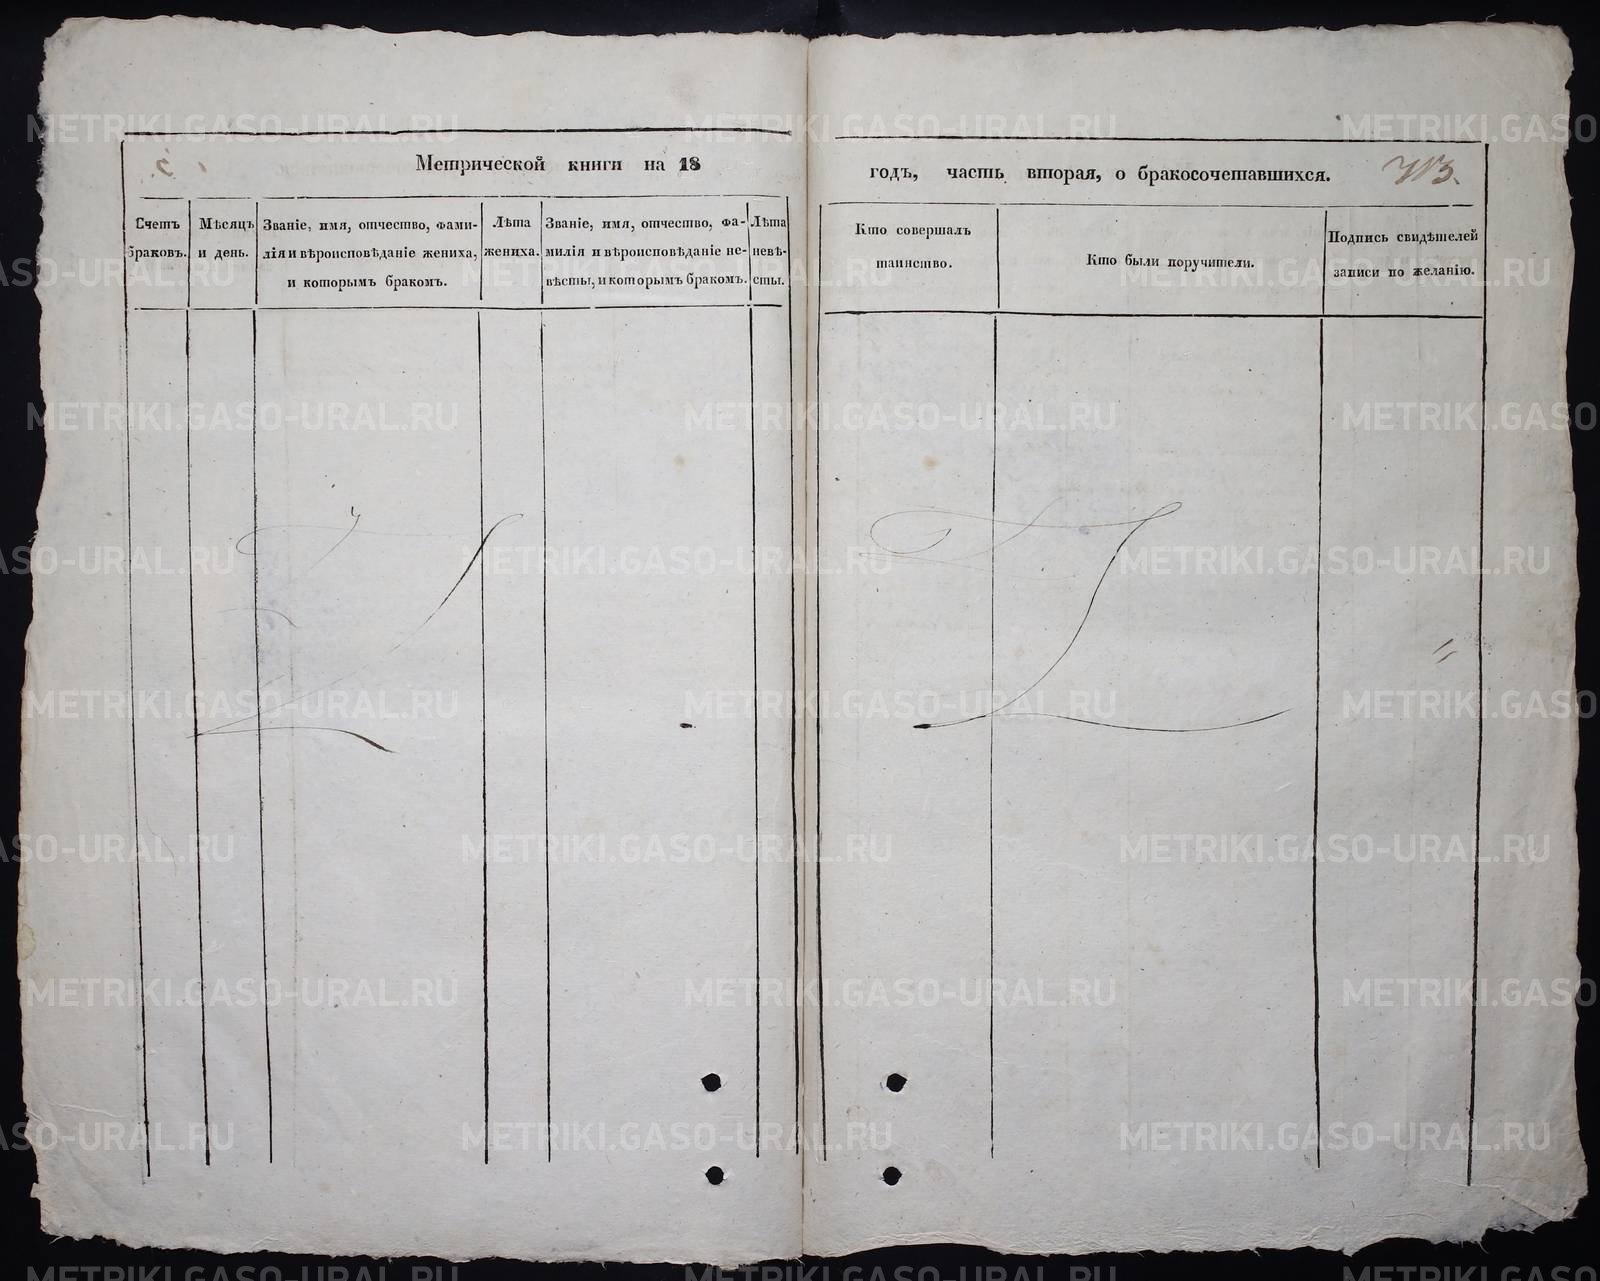 Метрической книги на 18
годъ, часть вторая, о бракосочетавшихся.
Счетъ
браковъ.
Мѣсяцъ
и день.
Званіе, имя, отчество, фами-
лія и вѣроисповѣданіе жениха,
и которымъ бракомъ.
Лѣта
жениха.
Званіе, имя, отчество, фа-
милія и вѣроисповѣданіе не-
вѣсты, и которымъ бракомъ.
Лѣта
невѣ-
сты.
Кто совершалъ
таинство.
Кто были поручители.
Подпись свидѣтелей
записи по желанію.
METRIKI.GASO-URAL.RU